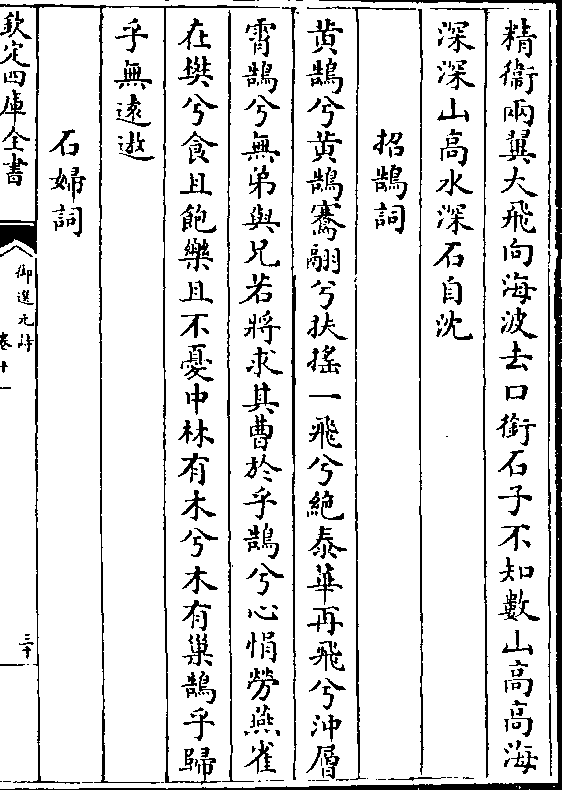 精衞兩翼大飛向海波去口銜石子不知數山高高海
深深山高水深石自沈
招鵠詞
黄鵠兮黄鵠騫翮兮扶搖一飛兮絶泰華再飛兮沖層
霄鵠兮無弟與兄若將求其曹於乎鵠兮心悁勞燕雀
在樊兮食且飽樂且不憂中林有木兮木有巢鵠乎歸
乎無逺遊
石婦詞
欽定四庫全書
御選元詩
卷十一
三十